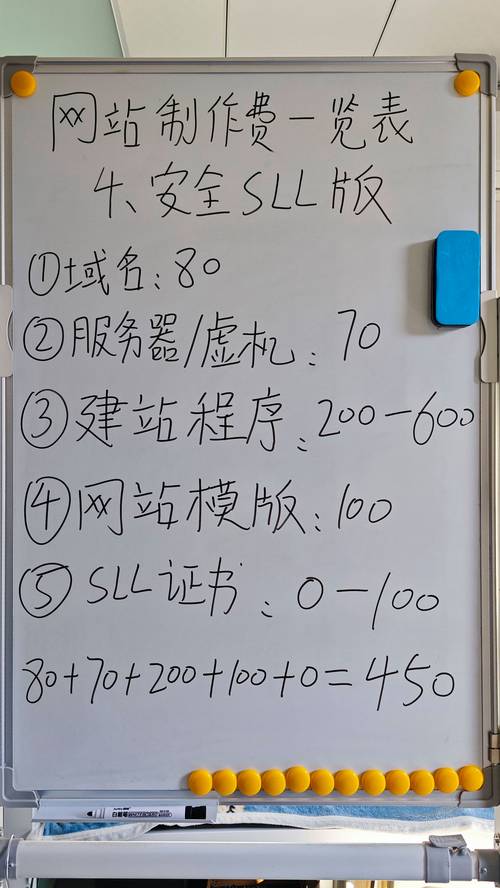 网站制作费一览表
4、安全SLL版
①域名:80
②服务器/虚机:70
③建站程序:200-600
④网站模版:100
⑤SLL证书:0-100
80+70+200+100+0=450
白板笔 WHITEBOARD